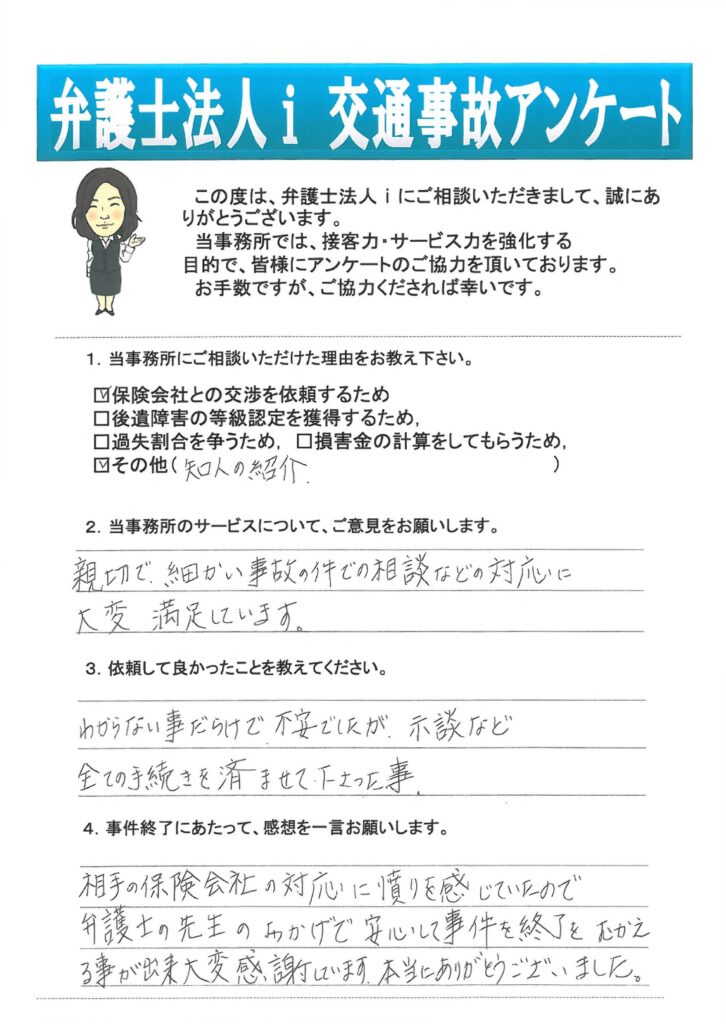 弁護士法人ｉ 交通事故アンケート
この度は、弁護士法人ｉにご相談いただきまして、誠にあ
りがとうございます。
当事務所では、接客力・サービス力を強化する
目的で、皆様にアンケートのご協力を頂いております。
お手数ですが、ご協力くだされば幸いです。
１．当事務所にご相談いただけた理由をお教え下さい。
☑保険会社との交渉を依頼するため
□後遺障害の等級認定を獲得するため，
□過失割合を争うため，□損害金の計算をしてもらうため，
☑その他（知人の紹介．）
２．当事務所のサービスについて、ご意見をお願いします。
親切で、細かい事故の件での相談などの対応に
大変 満足しています。
３．依頼して良かったことを教えてください。
わからない事だらけで、不安でしたが、示談など
全ての手続きを済ませて下さった事．
４．事件終了にあたって、感想を一言お願いします。
相手の保険会社の対応に憤りを感じていたので
弁護士の先生のおかげで安心して事件を終了をむかえ
る事が出来大変感謝しています．本当にありがとうございました。